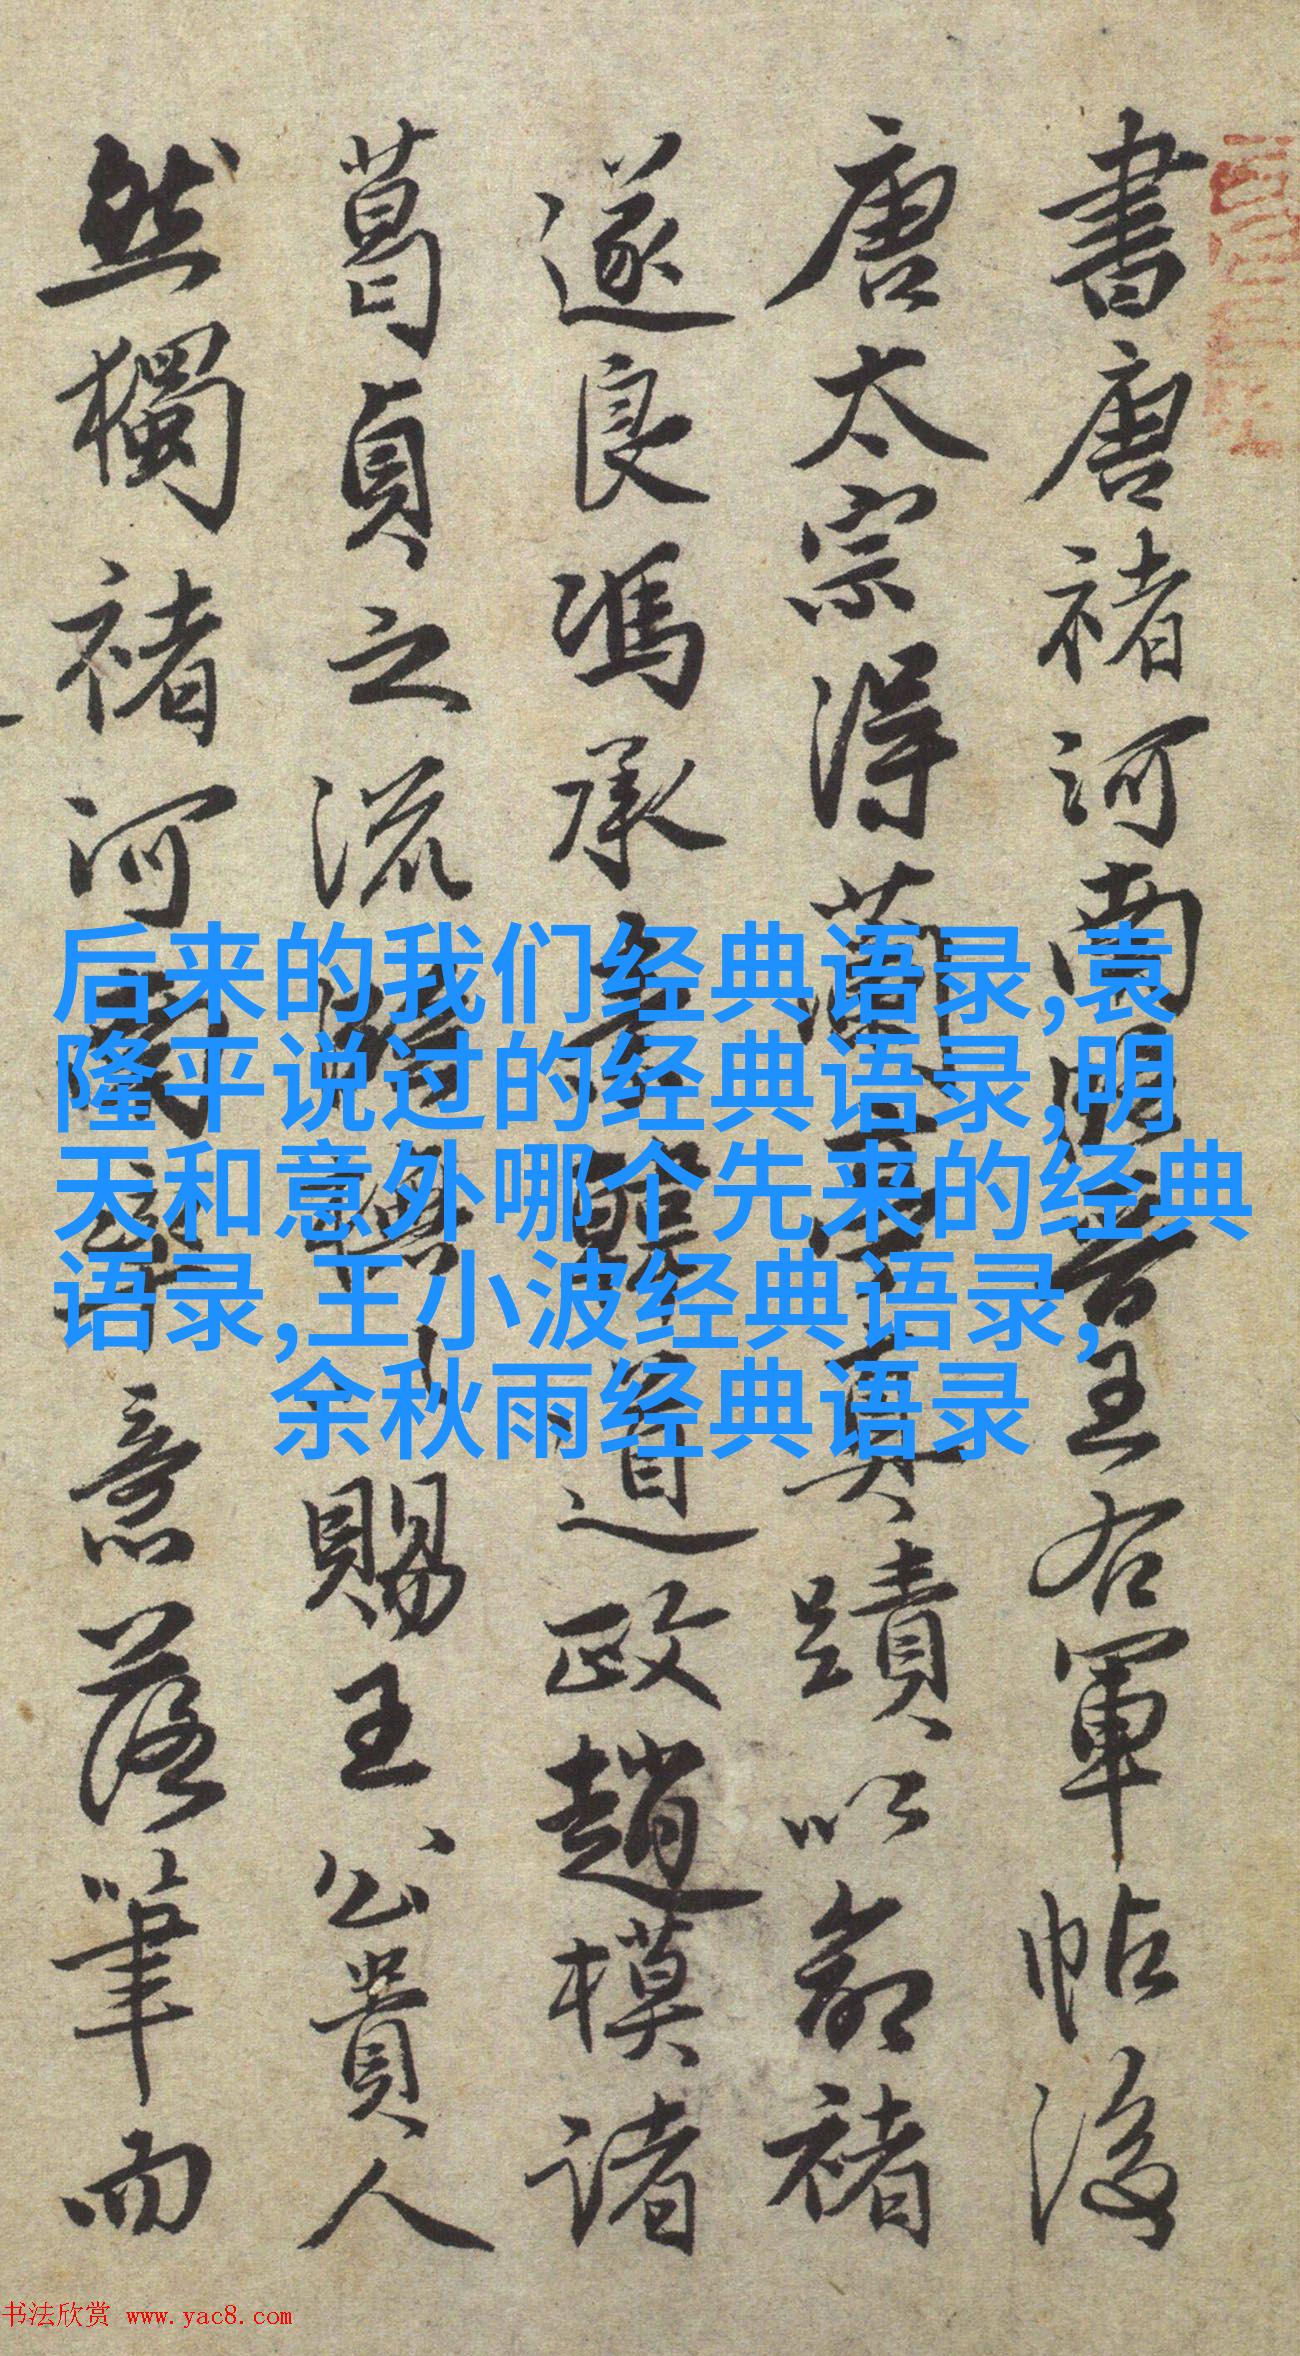 書唐褚河南臨晉王右軍帖後
唐太宗得蘭亭真蹟以命褚
遂良馮承素韓道政趙模諸
葛貞之流賜王公貴人
然獨褚河南率意落筆而
后来的我们经典语录,袁
隆平说过的经典语录,明
天和意外哪个先来的经典
语录,王小波经典语录,
余秋雨经典语录
书法欣赏 www.yac8.com